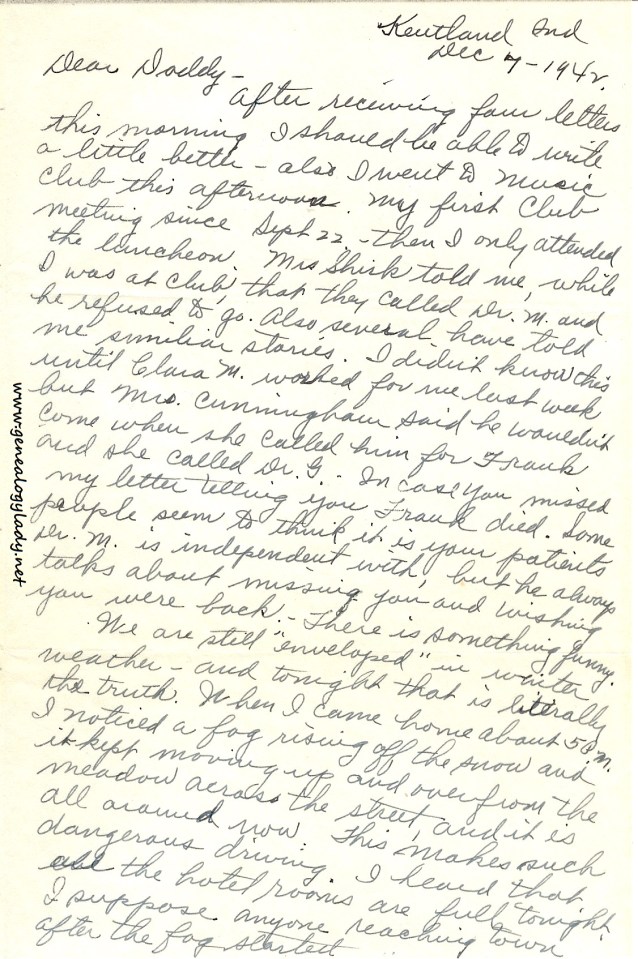 Kentland Ind
Dec 7-1942.
Dear Daddy-
After receiving four letters
this morning I should be able to write
a little better - also I went to Music
Club this afternoon. My first Club
meeting since Sept 22 - then I only attended
the luncheon. Mrs Shirk told me, while
I was at Club, that they called Dr. M. and
he refused to go. Also several have told
me similiar stories. I didn't know this
until Clara M. worked for me last week
but Mrs. Cunningham said he wouldn't
come when she called him for Frank
and she called Dr. G. In case you missed
my letter telling you Frank died. Some
people seem to think it is your patients
Dr. M. is independent with, but he always
talks about missing you and wishing
you were back. - There is something funny.
We are still "enveloped" in winter
weather - and tonight that is literally
the truth. When I came home about 5 P.M.
I noticed a fog rising off the snow and
it kept moving up and over from the
meadow across the street, and it is
all around now. This makes such
dangerous driving. I heard that
all the hotel rooms are full tonight.
I suppose anyone reaching town
after the fog started
www.genealogylady.net